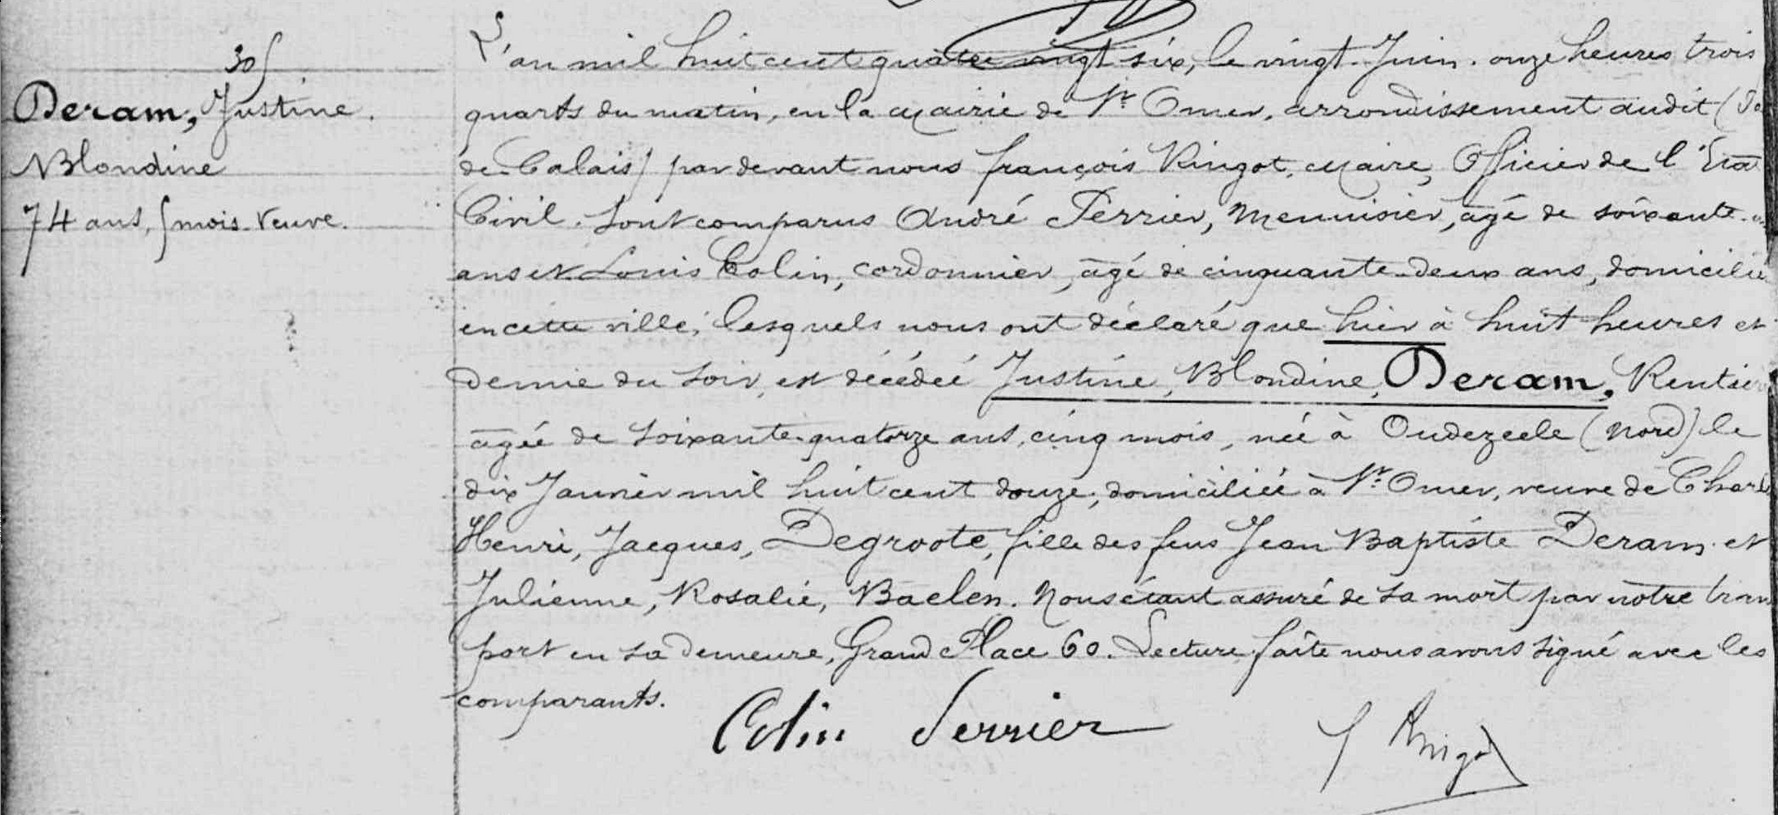 305
Deram, Justine.
Blondine
74 ans, 5 mois. Veuve.
L'an mil huit cent quatre vingt six, le vingt Juin. onze heures trois
quarts du matin, en la Mairie de St Omer, arrondissement dudit (Pa
de Calais) par devant nous françois Ringot, Maire, Officier de l'Etat
Civil. Sont comparus André Perrier, Menuisier, agé de soixante
ans et Louis Colin, cordonnier, âgé de cinquante-deux ans, domicilié
en cette ville; lesquels nous ont déclaré que hier à huit heures et
demie du soir, est décédée Justine, Blondine, Deram, Rentier
agée de soixante-quatorze ans, cinq mois, née à Oudezeele (Nord) le
dix Janvier mil huit cent douze; domiciliée à St Omer, veuve de Charles
Henri, Jacques, Degroote, fille des feus Jean Baptiste Deram et
Julienne, Rosalie, Baelen. Nous étant assuré de sa mort par notre tran
port en sa demeure, Grand Place 60. Lecture faite nous avons signé avec les
comparants.
Colin Perrier
f Ringot